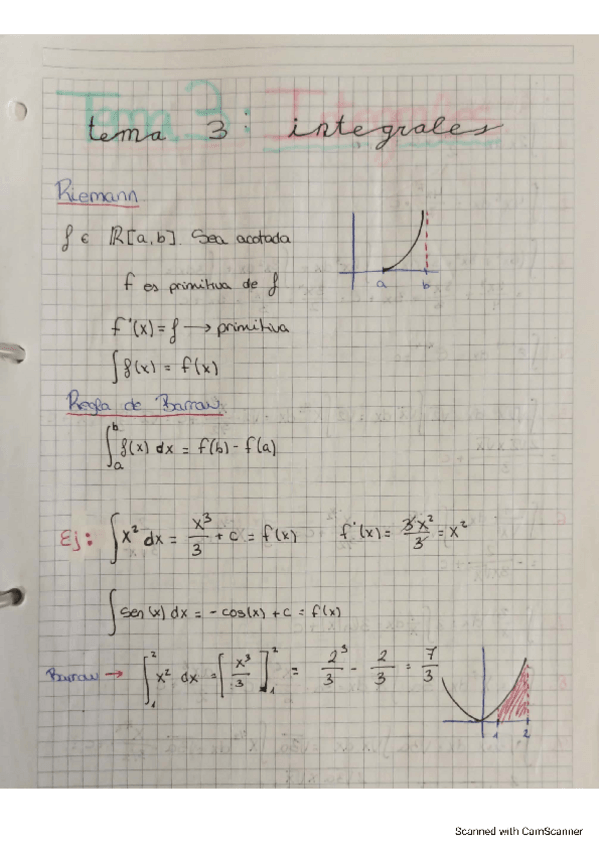 tema 3 : integrales
Riemann
f ∈ R[a,b]. Sea acotada
a b
f es primitiva de f
f'(x) = f → primitiva
∫f(x) = f(x)
Regla de Barrow
∫ₐᵇ f(x) dx = f(b) - f(a)
Ej: ∫x² dx = x³/3 + c = f(x) f'(x) = 3x²/3 = x²
∫sen(x) dx = -cos(x) + c = f(x)
Barrow → ∫₁² x² dx = [x³/3]₁² = 2³/3 - 2/3 = 7/3
1 2
Scanned with CamScanner